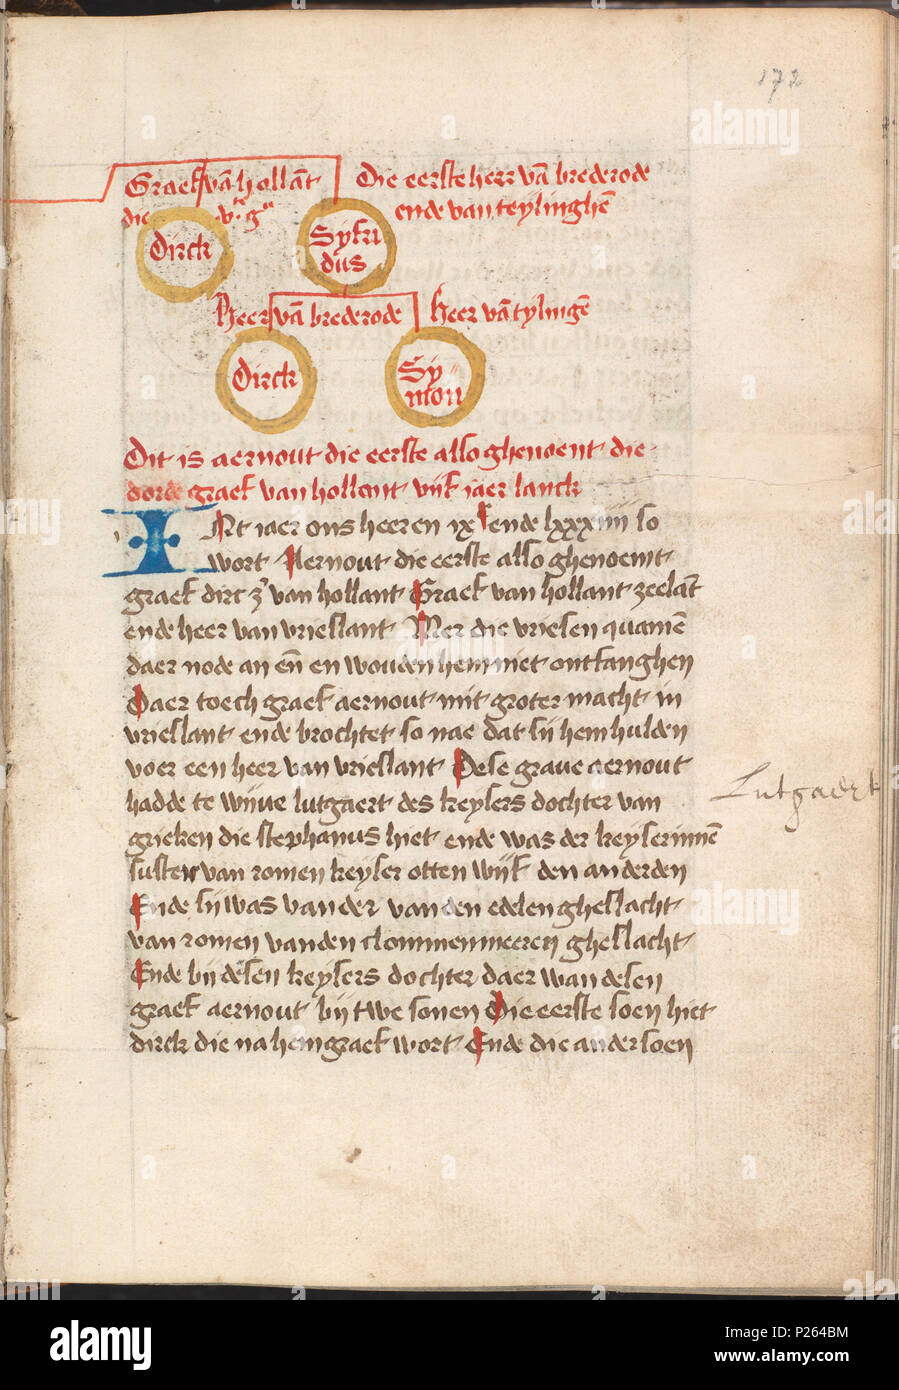 172
Graef vā hollāt· Die eerste heer vā brederode
die v.ᵉ gᵃ ende van teylinghē
Dirck Syfri
dus
Heer vā brederode heer vā tylingē
Dirck Sy-
mon
Dit is aernout die eerste also ghenoemt· die
dorde graef van hollant· vijf iaer lanck
INt iaer ons heeren ixᶜ ende lxxxiiii so
wort· Aernout die eerste also ghenoemt·
graef dirc zͦ van hollant· Graef van hollant· zeelāt
ende heer van vrieslant· Mer die vriesen quamē
daer node an eñ en wouden hem niet ontfanghen
Daer toech graef aernout· mit groter macht· in
vrieslant· ende brochtet so nae dat sij hem hulden
voer een heer van vrieslant· Dese graue aernout
hadde te wijue lutgaert des keysers dochter van
grieken die stephanus hiet· ende was der keyserinnē
suster van romen keyser otten wijf den anderden
Ende sij was van der van den edelen gheslacht·
van romen vanden clommenmeeren gheslacht·
Ende bij desen keysers dochter daer wan desen
graef aernout· bij twe sonen Die eerste soen hiet
dirck die na hem graef wort· Ende die ander soen
Lutgaert
alamy
Image ID: P264BM
www.alamy.com